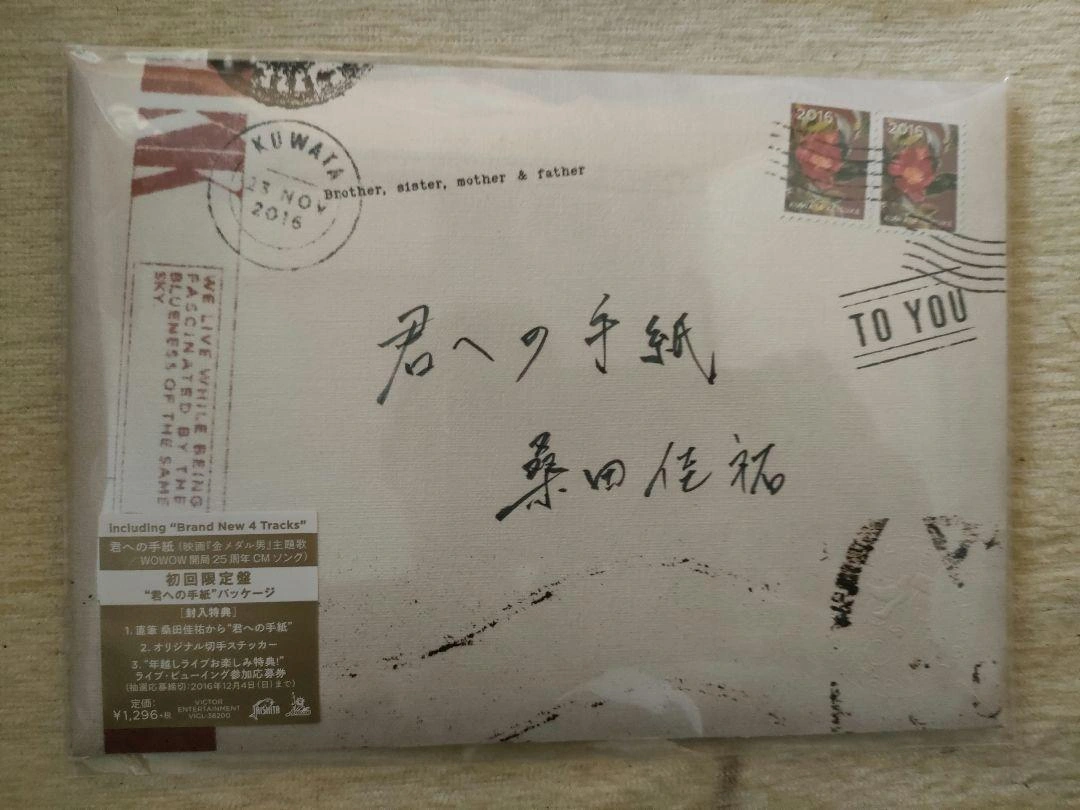 KUWATA
23 NOV
2016
Brother, sister, mother & father
2016
2016
TO YOU
君への手紙
桑田佳祐
WE LIVE WHILE BEING
FASCINATED BY THE
BLUENESS OF THE SAME
SKY
including “Brand New 4 Tracks”
君への手紙（映画『金メダル男』主題歌
／WOWOW開局25周年CMソング）
初回限定盤
“君への手紙”パッケージ
［封入特典］
1. 直筆 桑田佳祐から“君への手紙”
2. オリジナル切手ステッカー
3. “年越しライブお楽しみ特典!”
ライブ・ビューイング参加応募券
（抽選応募締切：2016年12月4日（日）まで）
定価：
¥1,296+税
VICTOR
ENTERTAINMENT
VICL-38200
TAISHITA